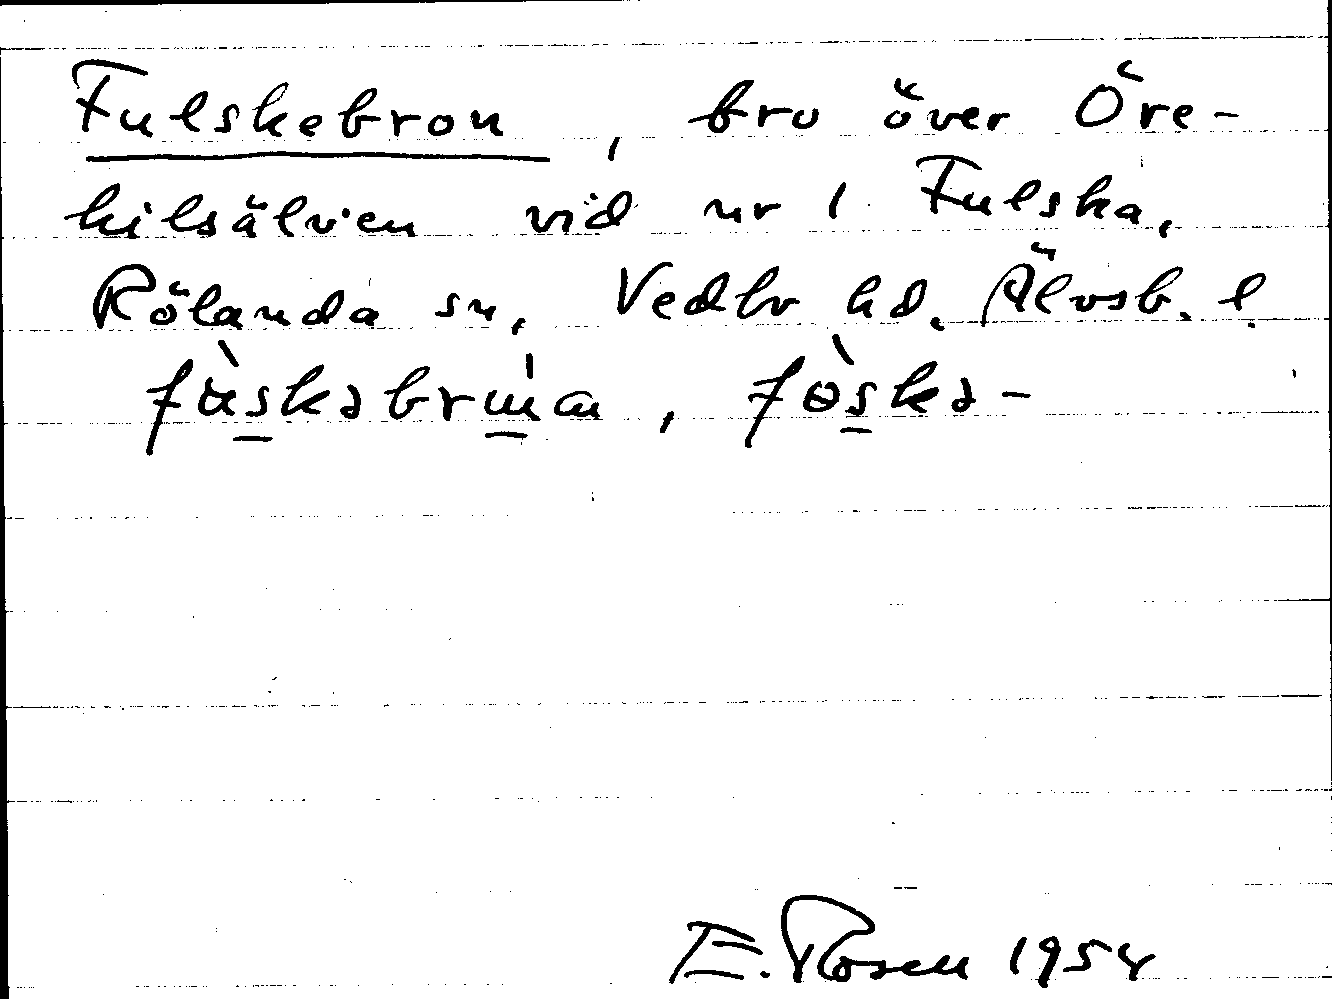 Fulskebron, bro över Öre-
kilsälven vid nr 1 Fulska,
Rölanda sn, Vedbo hd. Älvsb. l.
E. Rosen 1954